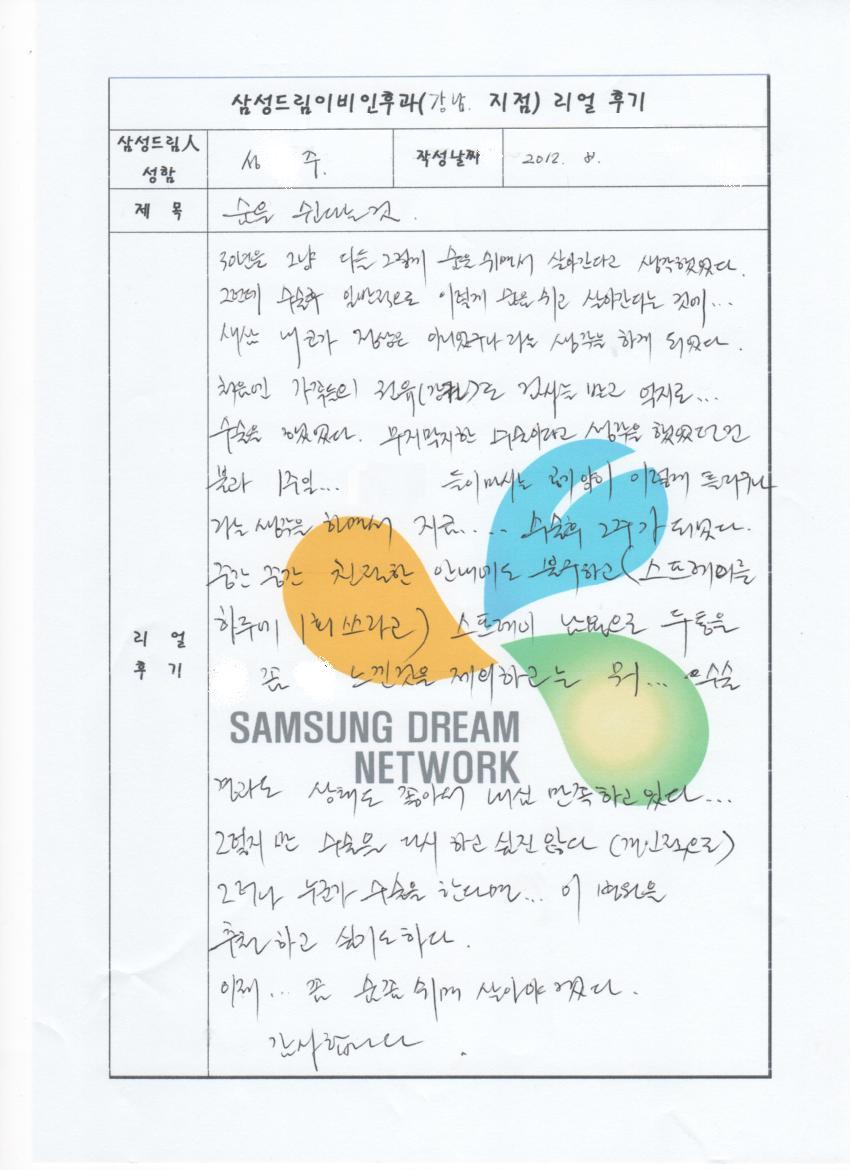 삼성드림이비인후과(강남. 지점) 리얼 후기
삼성드림人
성함
성 주.
작성날짜
2012. 8.
제 목
숨을 쉰다는것.
30년을 그냥 다들 그렇게 숨을 쉬면서 살아간다고 생각했었다.
그런데 수술후 일반적으로 이렇게 숨을 쉬고 살아간다는 것에...
새삼 내 코가 정상은 아니었구나 라는 생각을 하게 되었다.
처음엔 가족들의 권유(강권)로 검사를 받고 억지로...
수술을 했었다. 무지막지한 생각을 했었으면
불과 1주일... 들이마시는 공기 양이 이렇게 틀리구나
라는 생각을 하면서 치료.... 수술후 2주가 되었다.
중간 중간 친절한 안내에도 불구하고(스프레이를
하루에 1회 쓰라고) 스프레이 남용으로 두통을
좀 느낀것을 제외하고는 뭐... 수술
리 얼
후 기
SAMSUNG DREAM
NETWORK
경과도 상태도 좋아서 내심 만족하고있다...
그렇지 만 수술을 다시 하고 싶진 않다 (개인적으로)
그러나 누군가 수술을 한다면... 이 병원을
추천 하고 싶기도하다.
이제... 좀 숨좀 쉬며 살아야 겠다.
감사합니다.